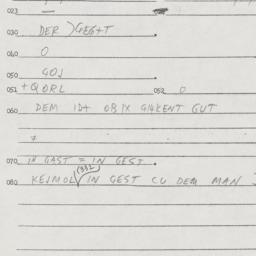 023
030 DER )GEG+T
040 0
050 GOJ
051 +QORL 052 0
060 DEM ID+ OBIX GI4KENT GUT
7
070 IN GAST = IN GEST
(332)
080 KEJMOL IN GEST CU DEM MAN